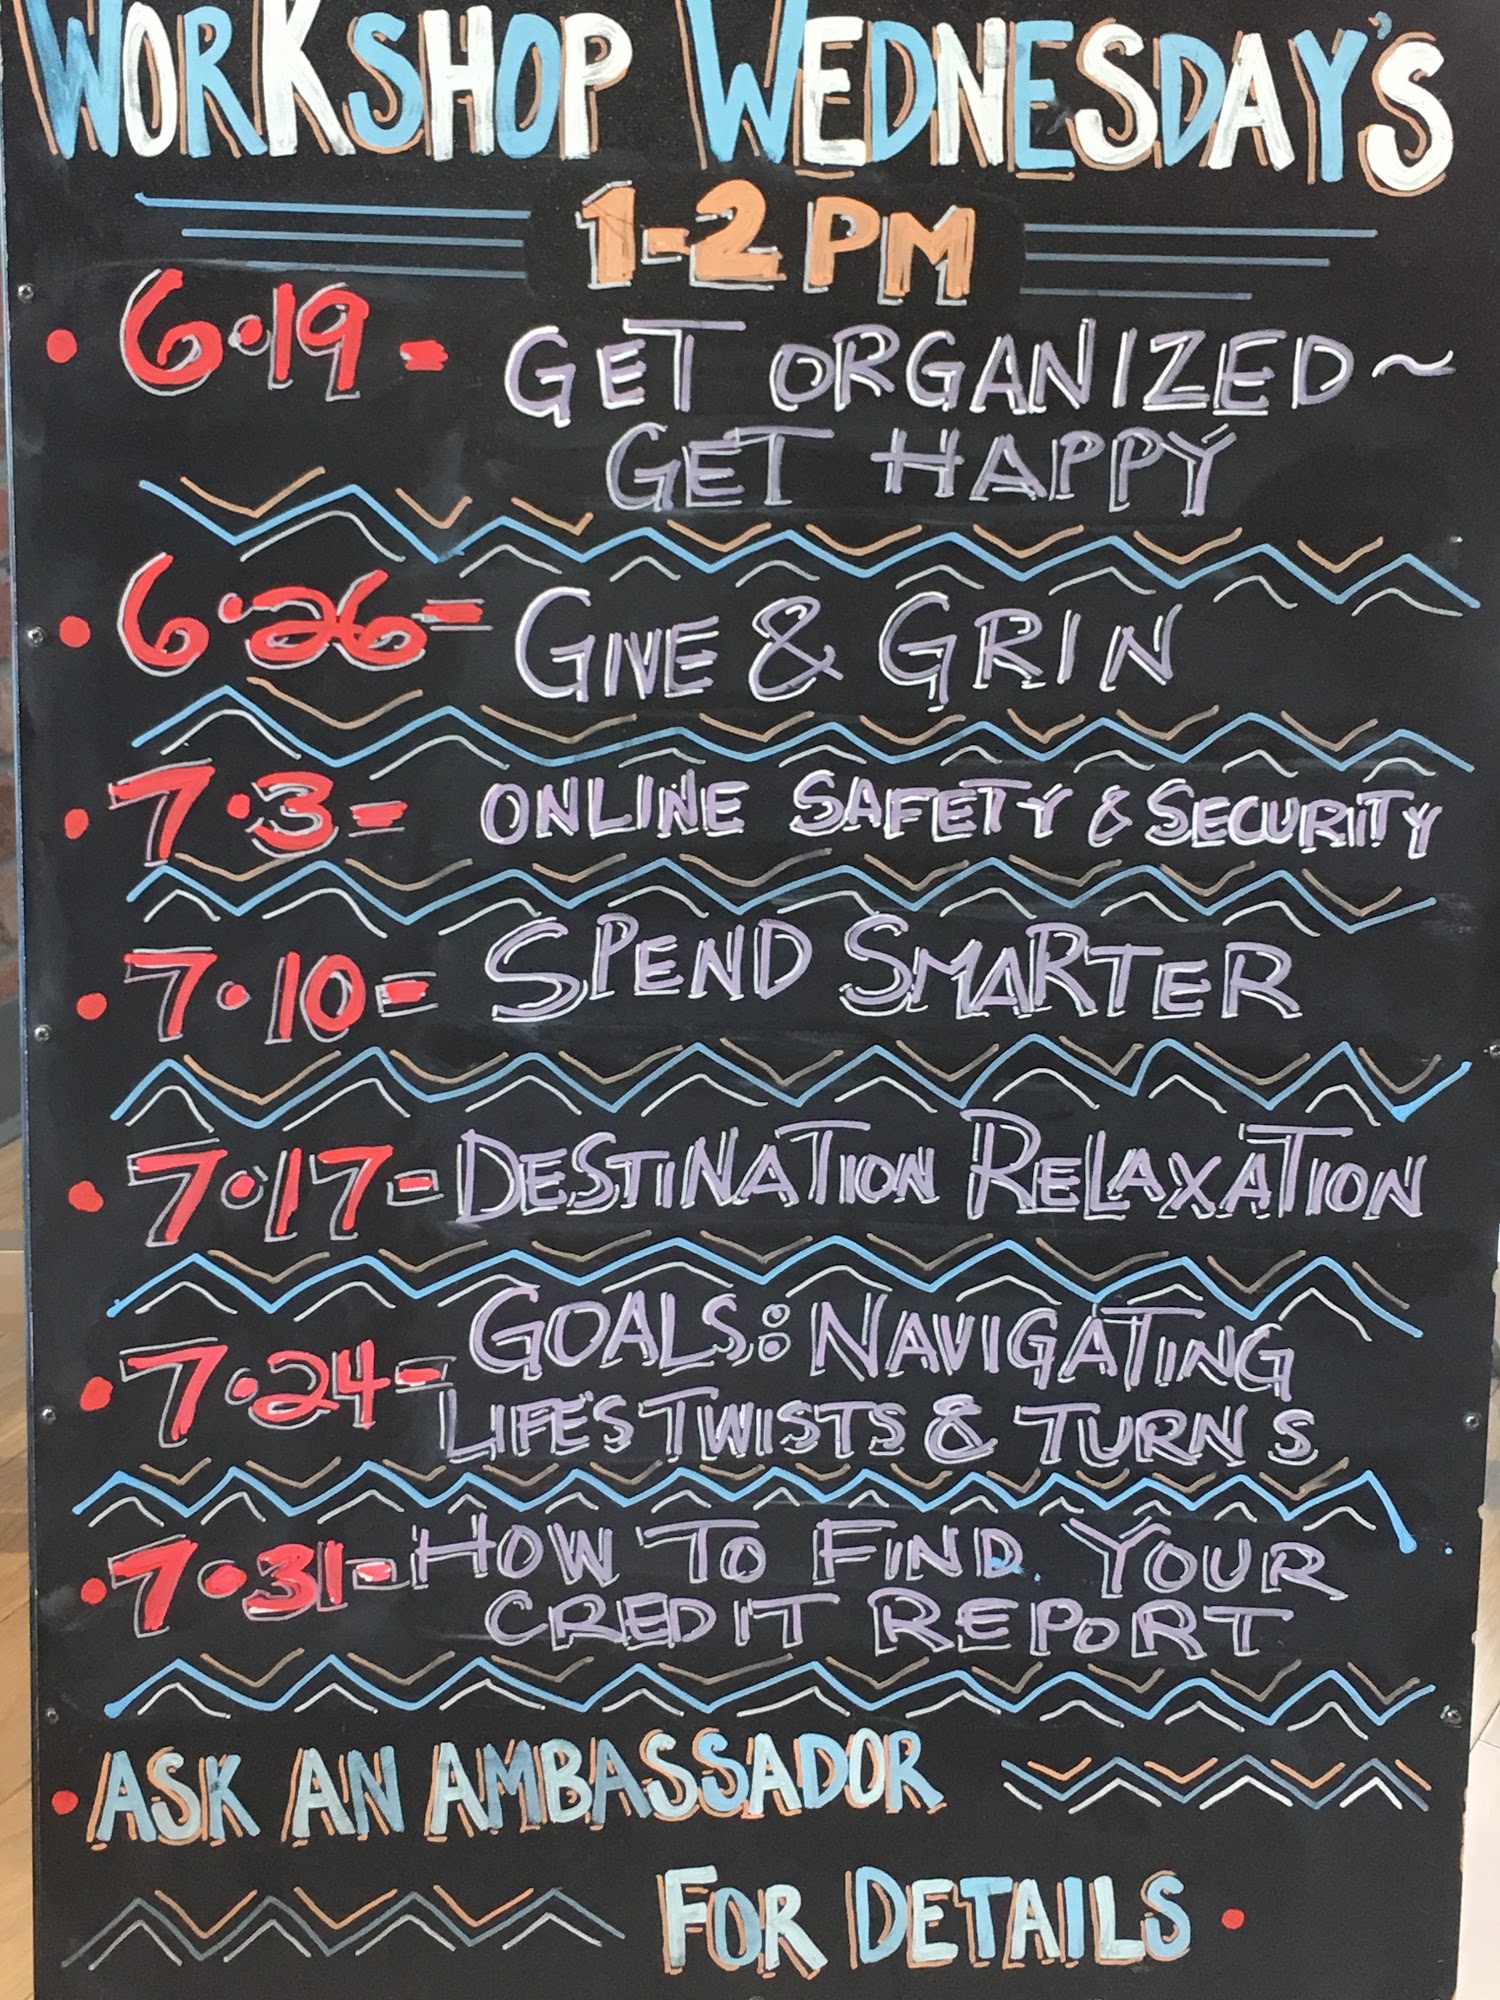 WORKSHOP WEDNESDAY'S
1-2 PM
• 6•19 - GET ORGANIZED ~
GET HAPPY
• 6•26 - GIVE & GRIN
• 7•3 - ONLINE SAFETY & SECURITY
• 7•10 - SPEND SMARTER
• 7•17 - DESTINATION RELAXATION
• 7•24 - GOALS: NAVIGATING
LIFE'S TWISTS & TURNS
• 7•31 - HOW TO FIND YOUR
CREDIT REPORT
• ASK AN AMBASSADOR
FOR DETAILS •